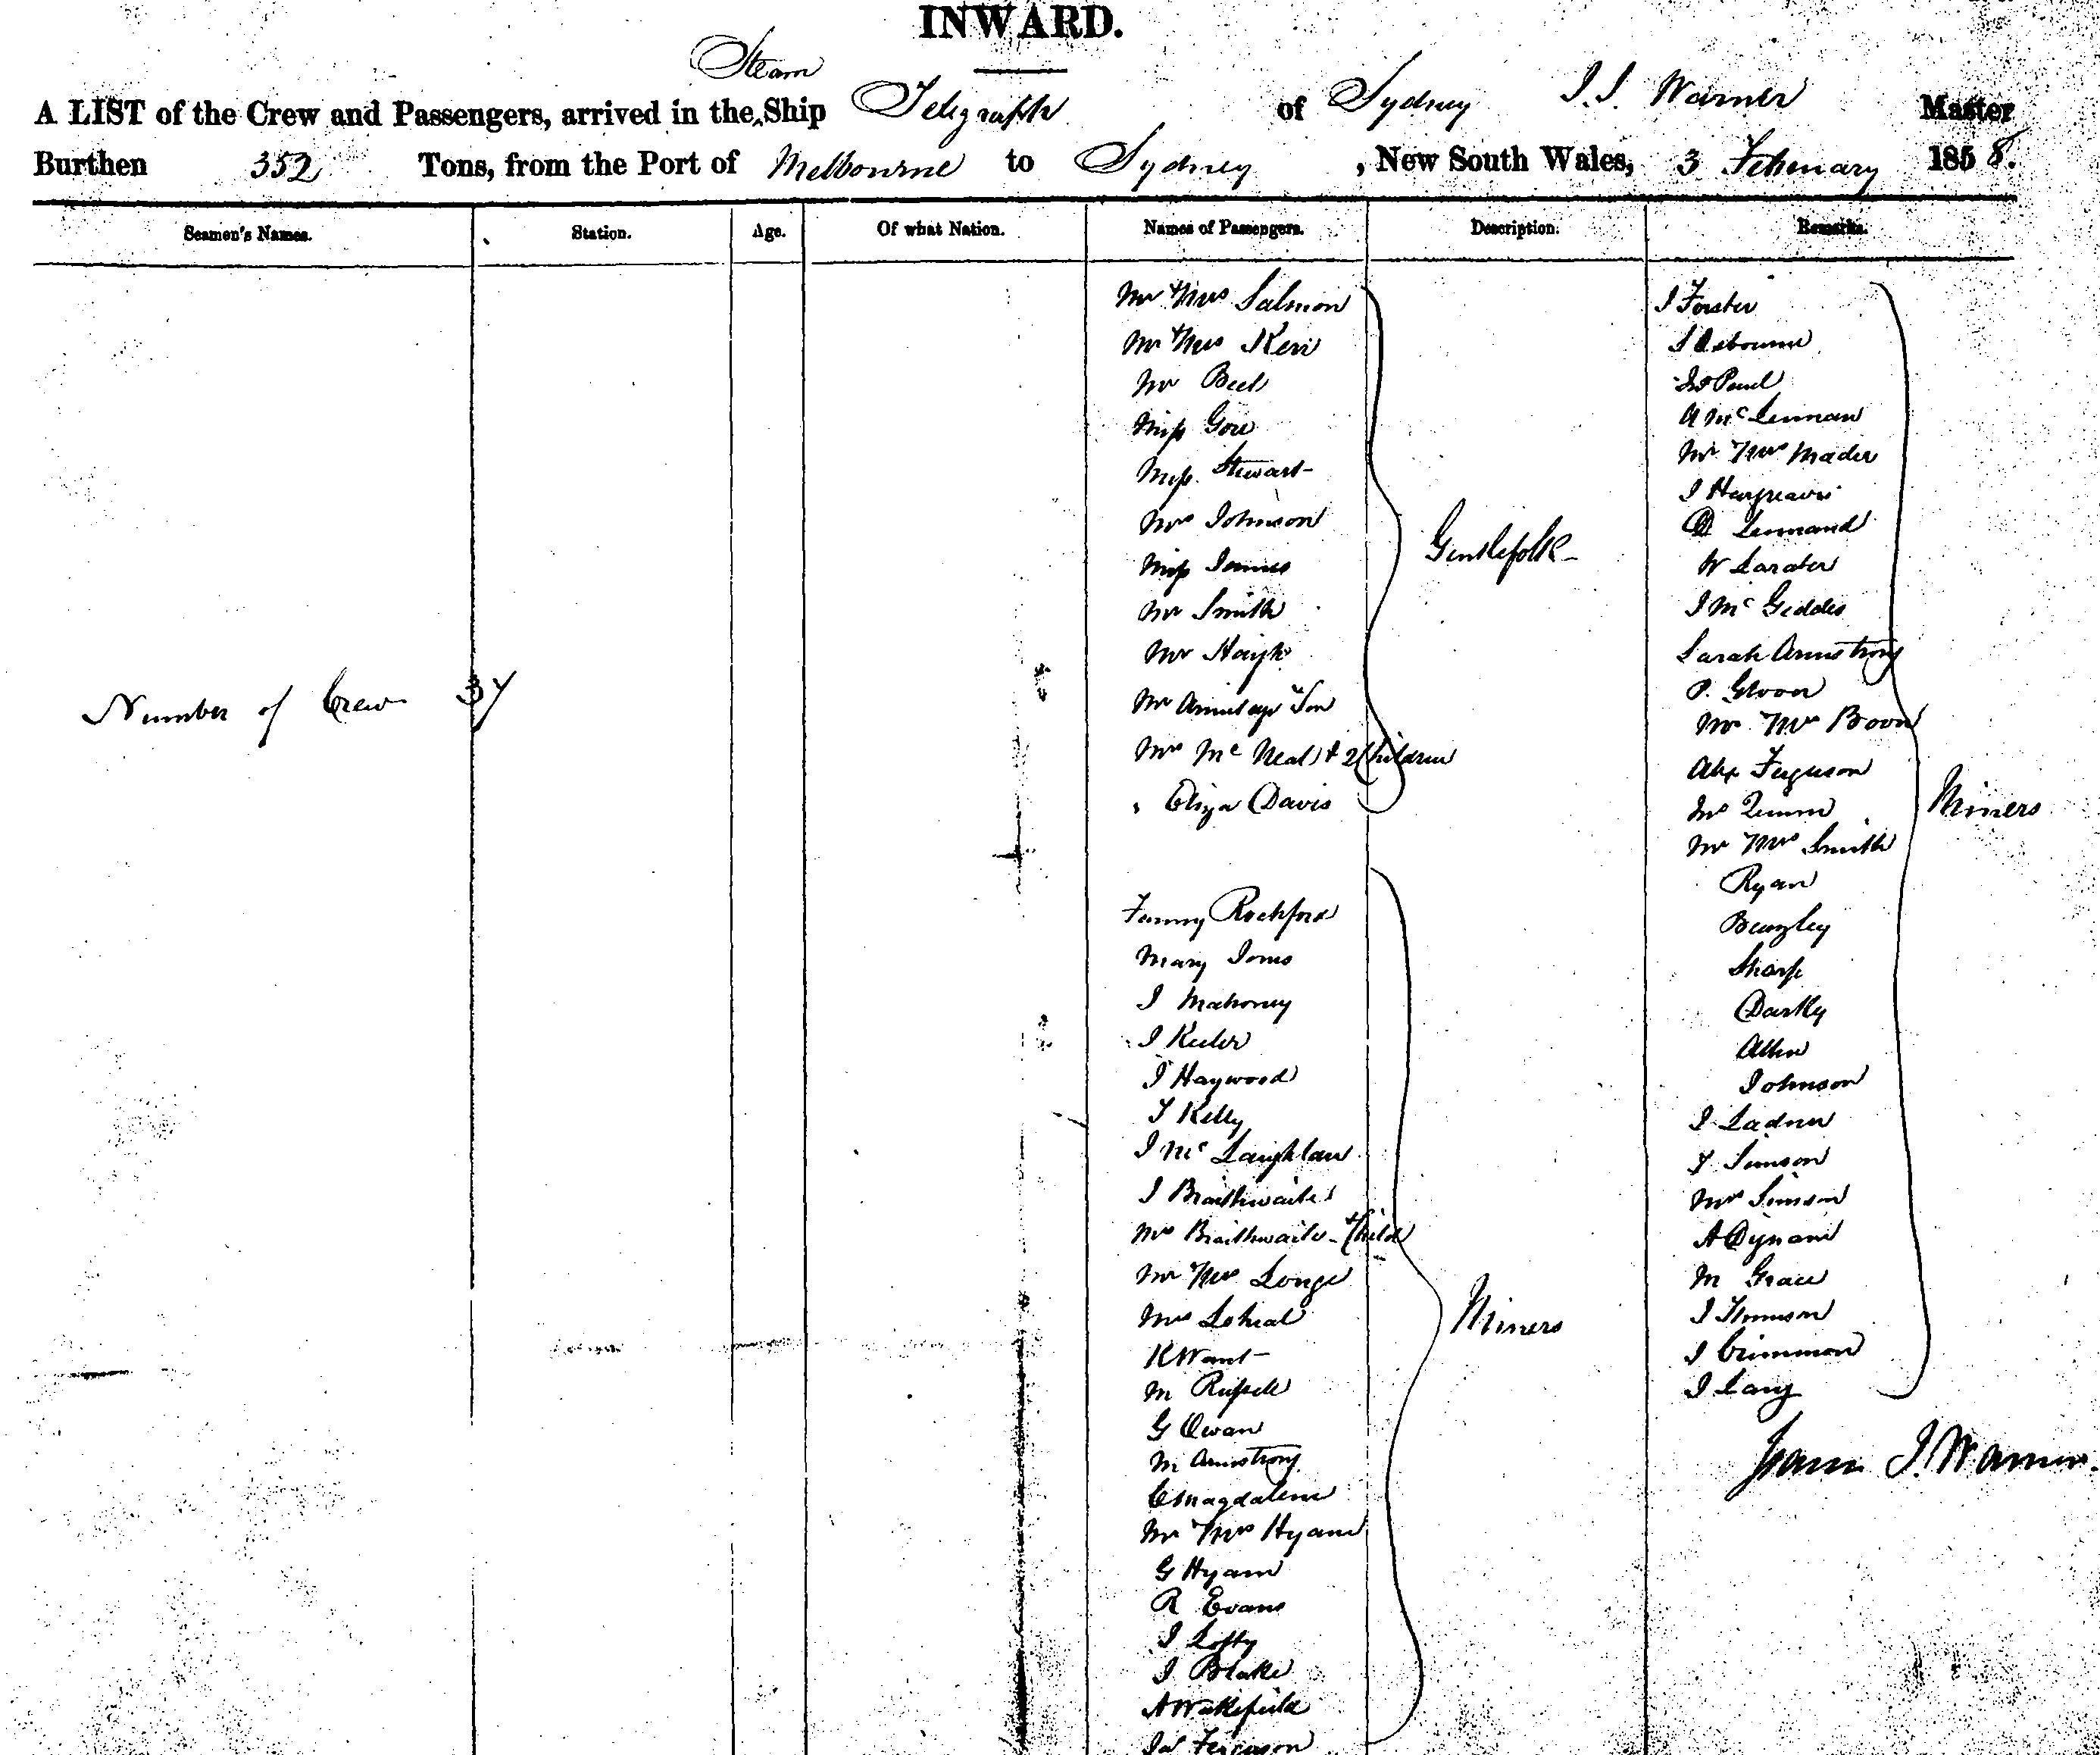 INWARD.
Steam
A LIST of the Crew and Passengers, arrived in the Ship Telegraph of Sydney J. J. Warner Master
Burthen 352 Tons, from the Port of Melbourne to Sydney, New South Wales, 3 February 1858.
Seamen's Names. Station. Age. Of what Nation. Names of Passengers. Description. Remarks.
Number of Crew 37
Mr & Mrs Salmon
Mr & Mrs Kerr
Mr
Miss Gore
Miss Stewart
Mrs Johnson
Miss
Mr Smith
Mr Haigh
Mr Armitage & Son
Mrs Mc Neal & 2 Children
Eliza Davis
Gentlefolk
Fanny Rochford
Mary Jones
J Mahoney
J Keeler
J Haywood
T Kelly
J Mc Laughlan
J Braithwaite
Mrs Braithwaite & Child
Mr & Mrs Longe
Mrs
R Want
M Russell
G
M Armstrong
C Magdalene
Mr & Mrs Hyam
G Hyam
R Evans
J Lofty
J Blake
A Wakefield
Jas Ferguson
Miners
J Forster
J Osbourne
Jno Paul
A McLennan
Mr & Mrs Mader
J Hargreaves
D Lennand
W Larater
J Mc Geddes
Sarah Armstrong
P.
Mr & Mrs Boon
Alex Ferguson
Quinn
Mr & Mrs Smith
Ryan
Beazley
Sharp
Darky
Allen
Johnson
J Ladner
Simson
Mrs Simson
A
M Grace
J Thomson
J Crimmon
J Lang
Miners
J. Warner.